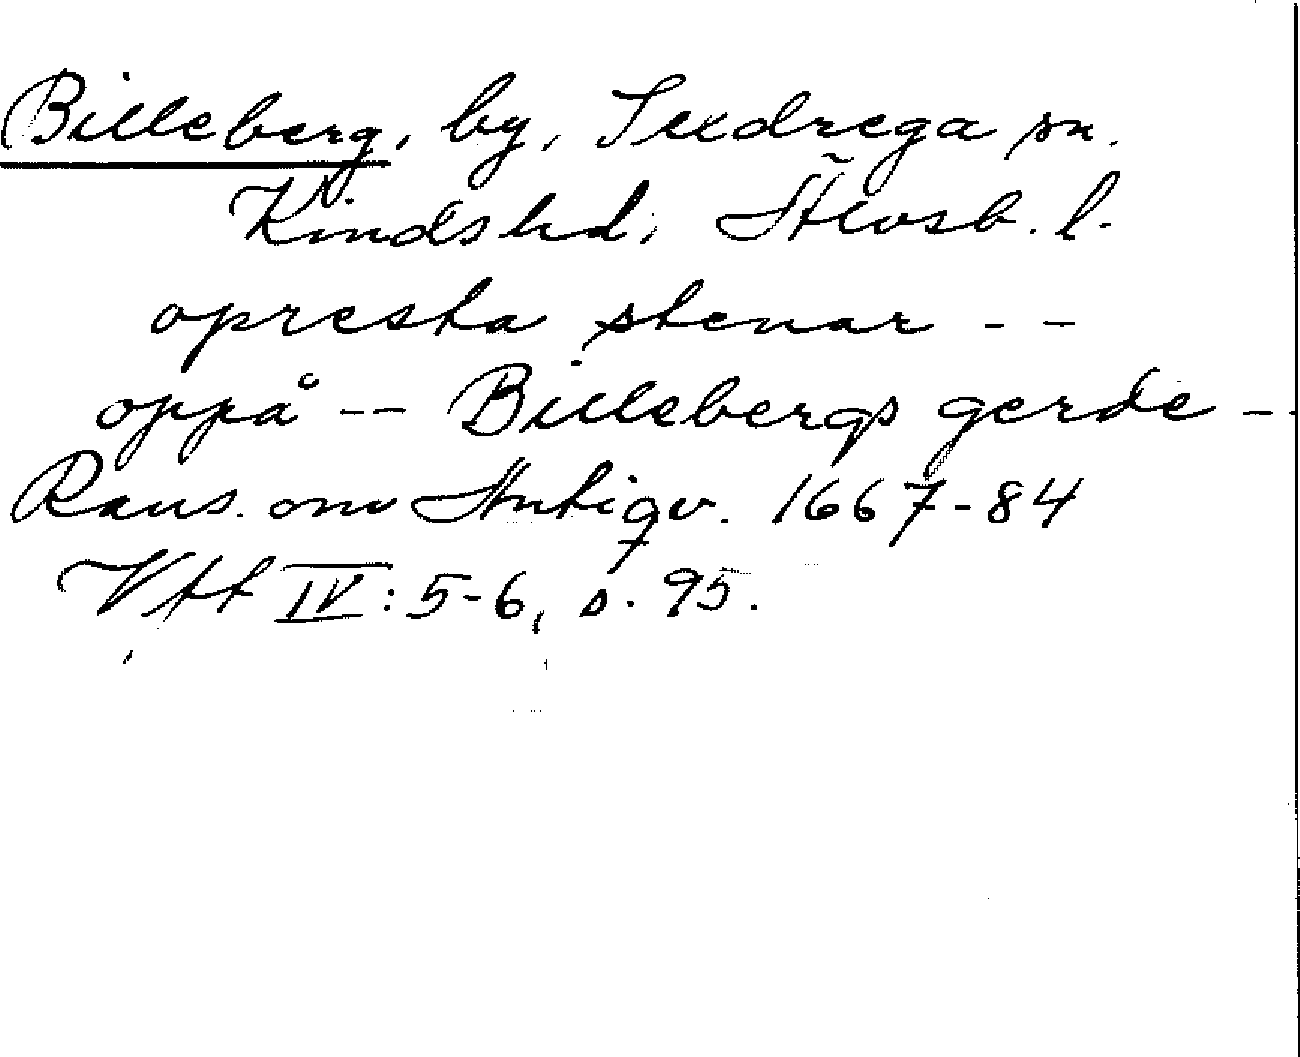 Billeberg, by, Sexdrega sn.
Kinds hd, Älvsb. l.
opresta stenar - -
oppå -- Billebergs gerde --
Rans. om Antiqv. 1667-84
Vff IV: 5-6, s. 95.